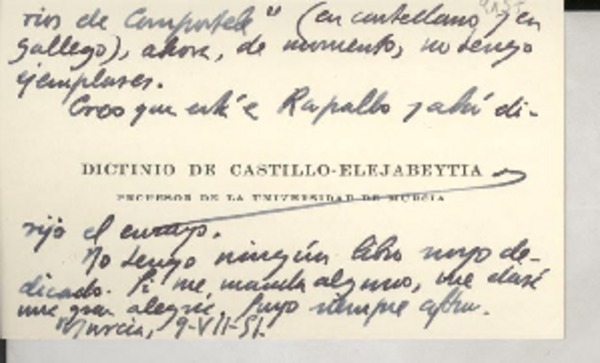 rios de Compostela" (en castellano y en
gallego), ahora, de momento, no tengo
ejemplares.
Creo que está e Rapallo y ahí di-
DICTINIO DE CASTILLO-ELEJABEYTIA
PROFESOR DE LA UNIVERSIDAD DE MURCIA
rijo el
No tengo ningún libro suyo de-
dicado. Si me manda alguno, me dará
una gran alegría. Suyo siempre
Murcia, 9-VII-51.